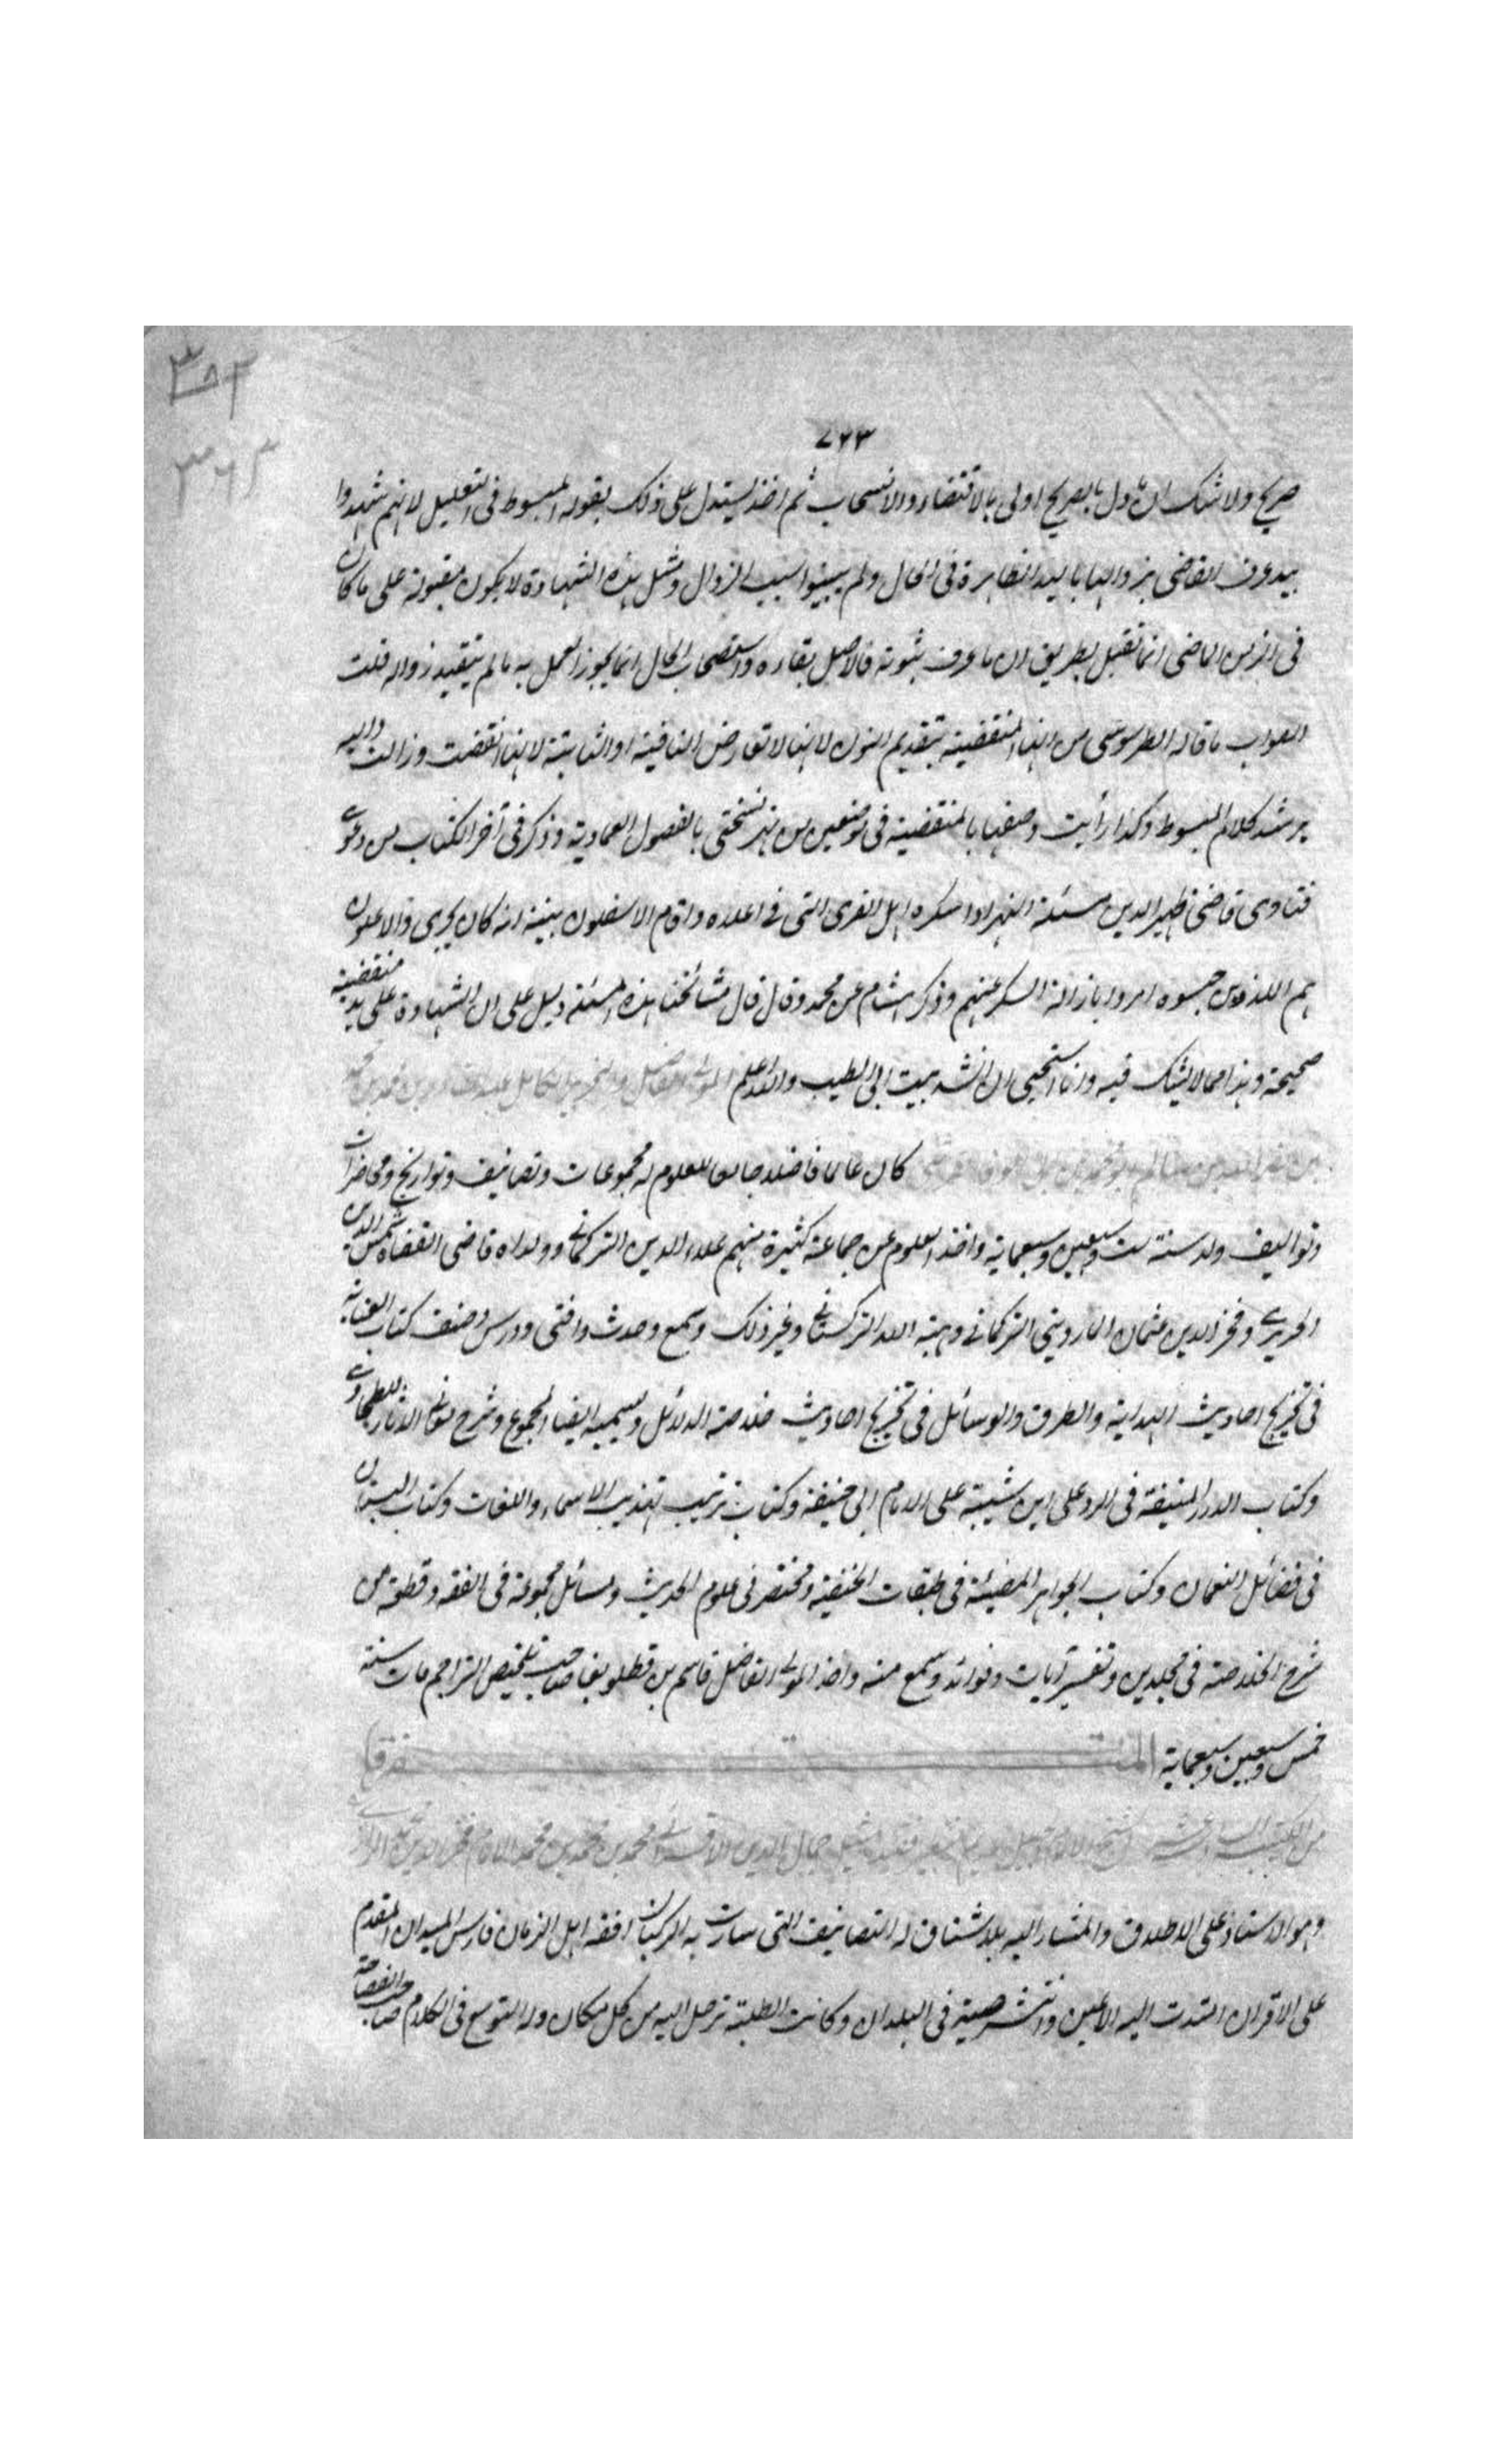 ٧٢٣
صريح ولا شك ان ما دل بالصريح اولى بالاقتضاء والانسحاب ثم اخذ يستدل على ذلك بقوله المبسوط في التعليل لانهم شهدوا
بيد عرف القاضي بزوالها باليد الظاهرة في الحال ولم يبينوا سبب الزوال ومثل هذه الشهادة لا يكون مقبولة على ما كان
في الزمن الماضي انما تقبل بطريق ان ما عرف ثبوته فالاصل بقاءه واستصحاب الحال انما يجوز العمل به ما لم يتيقن زواله قلت
الصواب ما قاله الطرسوسي من انها المنقضية بتقديم النون لانها لا تعارض النافية او الثابتة لانها انقضت وزالت واليه
يرشد كلام المبسوط وكذا رأيت وصفها بالمنقضية في موضعين من نسختي بالفصول العمادية وذكر في آخر الكتاب من دعوى
فتاوى قاضي ظهير الدين مسئلة النهر اذا سكره اهل القرى التي في اعلاه واقام الاسفلون بينة انه كان يجري والاعلون
هم اللذون حبسوه امروا بازالة السكر عنهم وذكر هشام عن محمد وقال قال مشائخنا هذه المسئلة دليل على ان الشهادة على يد منقضية
صحيحة وهذا مما لا يشك فيه وانا استحيي ان انشد بيت ابي الطيب والله اعلم المولى الفاضل والنحرير الكامل عبد القادر بن محمد بن محمد
بن نصر الله بن سالم ابو محمد بن ابي الوفا القرشي كان عالما فاضلا جامعا للعلوم له مجموعات وتصانيف وتواريخ ومحاضرات
وتواليف ولد سنة ست وسبعين وسبعماية واخذ العلوم عن جماعة كثيرة منهم علاء الدين التركماني وولداه قاضي القضاة شمس الدين
الحريري وفخر الدين عثمان المارديني التركماني وهبة الله التركستاني وغير ذلك وسمع وحدث وافتى ودرس وصنف كتاب العناية
في تخريج احاديث الهداية والطرق والوسائل في تخريج احاديث خلاصة الدلائل ويسميه ايضا المجموع وشرح معاني الآثار للطحاوي
وكتاب الدرر المنيفة في الرد على ابن شيبة على الامام ابي حنيفة وكتاب ترتيب تهذيب الاسماء واللغات وكتاب البستان
في فضائل النعمان وكتاب الجواهر المضيئة في طبقات الحنفية ومختصر في علوم الحديث ومسائل مجموعة في الفقه وقطعة من
شرح الخلاصة في مجلدين وتفسير آيات وفوائد وسمع منه واخذ المولى الفاضل قاسم بن قطلوبغا صاحب تلخيص التراجم مات سنة
خمس وسبعين وسبعماية المتفرقا
من الكتيبة السادسة عشر الشيخ الامام جمال الدين الاقسرائي محمد بن محمد بن محمد الامام فخر الدين الرازي
وهو الاستاذ على الاطلاق والمشار اليه بلا شقاق له التصانيف التي سارت به الركبان افقه اهل الزمان فارس الميدان المقدم
على الاقران امتدت اليه الاعين وانتشر صيته في البلدان وكانت الطلبة ترحل اليه من كل مكان وله التوسع في الكلام صاحب الفصاحة